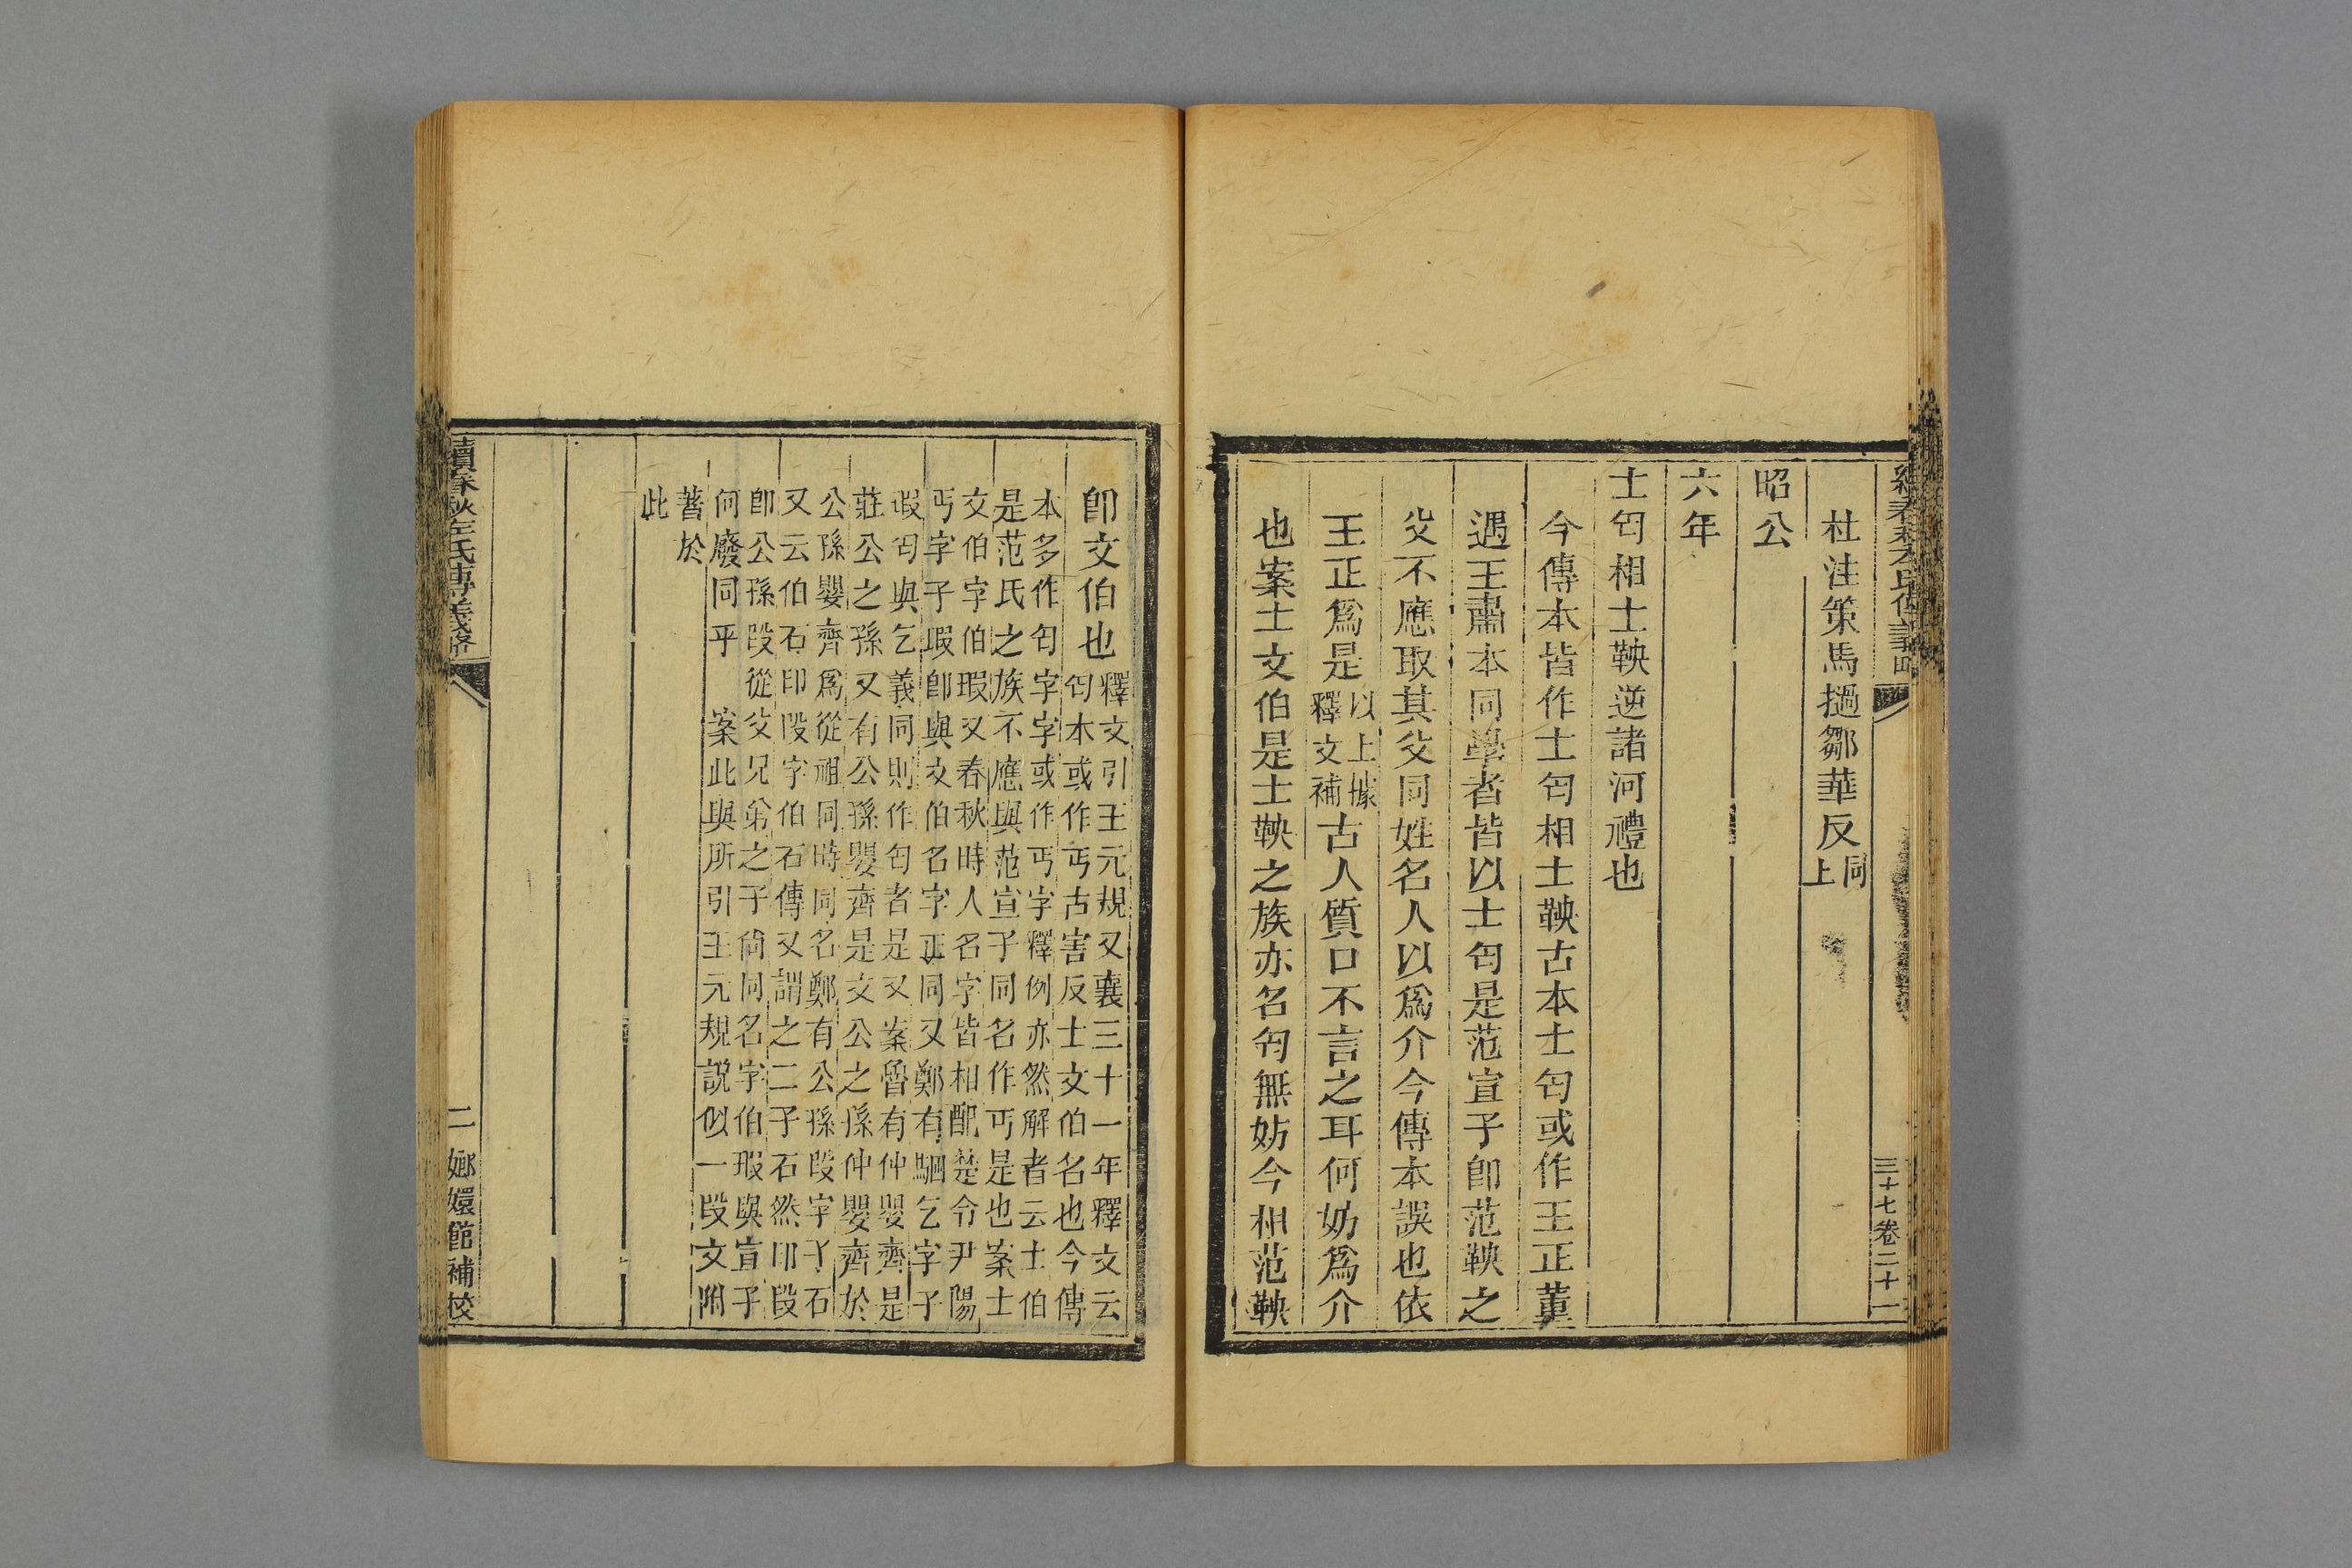 三十七卷二十一
杜注策馬檛鄒華反同上
昭公
六年
士匄相士鞅逆諸河禮也
今傳本皆作士匄相士鞅古本士匄或作王正董
遇王肅本同學者皆以士匄是范宣子卽范鞅之
父不應取其父同姓名人以爲介今傳本誤也依
王正爲是以上據釋文補古人質口不言之耳何妨爲介
也案士文伯是士鞅之族亦名匄無妨今相范鞅
卽文伯也釋文引王元規又襄三十一年釋文云
匄本或作丐古害反士文伯名也今傳
本多作匄字字或作丐字釋例亦然解者云士伯
是范氏之族不應與范宣子同名作丐是也案士
文伯字伯瑕又春秋時人名字皆相配楚令尹陽
丐字子瑕卽與文伯名字正同又鄭有駟乞字子
瑕匄與乞義同則作匄者是又案魯有仲嬰齊是
莊公之孫又有公孫嬰齊是文公之孫仲嬰齊於
公孫嬰齊爲從祖同時同名鄭有公孫段字子石
又云伯石印段字伯石傳又謂之二子石然印段
卽公孫段從父兄弟之子尚同名字伯瑕與宣子
何廢同乎 案此與所引王元規說似一段文附
著於
此
續春秋左氏傳義略 二 嫏嬛館補校